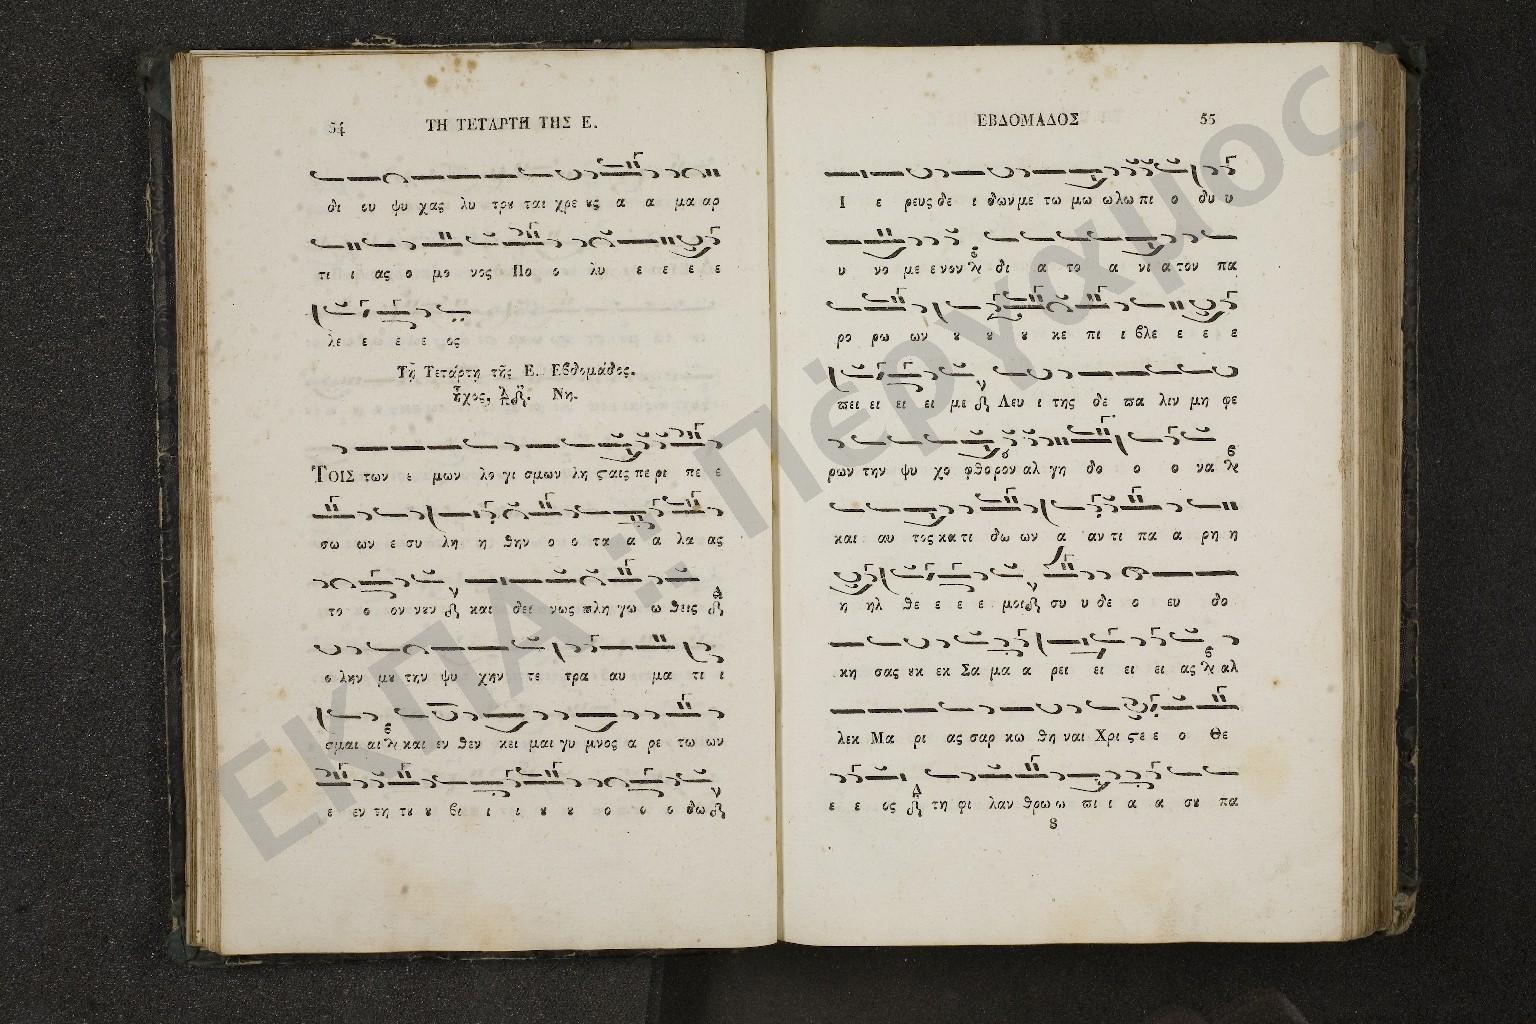 54
ΤΗ ΤΕΤΑΡΤΗ ΤΗΣ Ε.
δι ȣ ψυ χας λυ τρȣ ται χρε ȣς α α μα αρ
τι ι ας ο μο νος Πο ο λυ ε ε ε ε
λε ε ε ε ος
Τῇ Τετάρτῃ τῆς Ε. Εβδομάδος.
ἦχος, Νη.
ΤΟΙΣ των ε μων λο γι σμων λη ϛαις πε ρι πε ε
σω ων ε συ λη η θην ο ο τα α α λα ας
το ο ον νεν και δει νως πλη γω ω θεις
ο λην μȣ την ψυ χην τε τρα αυ μα τι ι
σμαι αι και εν θεν κει μαι γυ μνος α ρε τω ων
ε εν τη τȣ ȣ βι ι ι ȣ ȣ ο ο ο δω
ΕΒΔΟΜΑΔΟΣ
55
Ι ε ρευς δε ι δων με τω μω ω λω πι ο δυ υ
υ νο με ε νον δι α το α νι α τον πα
ρο ρω ων ȣ ȣ ȣ κε πι ι βλε ε ε ε
ϖει ει ει ει με Λευ ι της δε ϖα λιν μη φε
ρων την ψυ χο φθορον αλ γη δο ο ο να
και αυ τος κα τι δω ων α αν τι πα α ρη η
η ηλ θε ε ε ε μοι συ υ δε ο ευ δο
κη σας ȣκ εκ Σα μα α ρει ει ει ει ας αλ
λεκ Μα ρι ας σαρ κω θη ναι Χρι ϛε ε ο Θε
ε ε ος τη φι λαν θρω ω πι ι α α σȣ πα
8
ΕΚΠΑ :: Πέργαμος